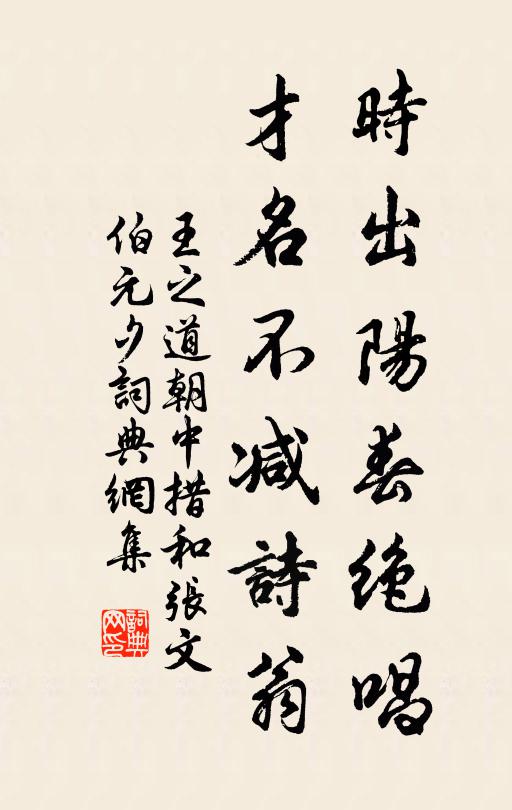 時出陽春绝唱
才名不减詩翁
王之道朝中措和張文
伯元夕詞典網集
詞典网印